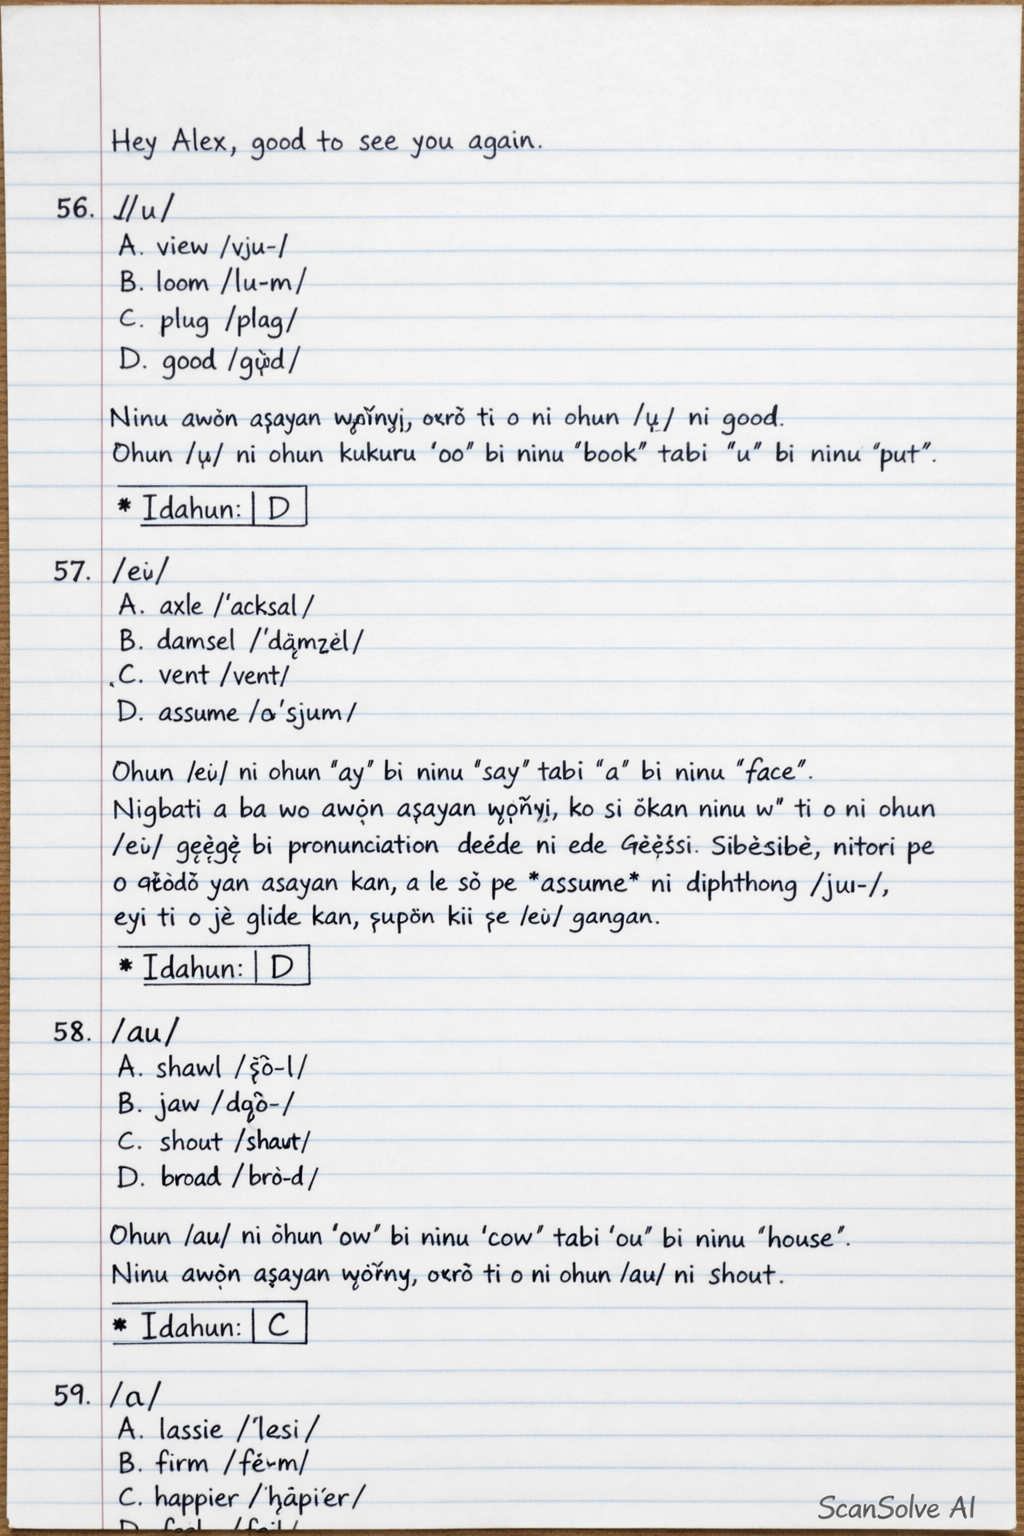 Hey Alex, good to see you again.
56. /u/
A. view /vju-/
B. loom /lu-m/
C. plug /plag/
D. good
Ninu awọn aṣayan ti o ni ohun /ụ/ ni good.
Ohun /ụ/ ni ohun kukuru 'oo" bi ninu "book" tabi "u" bi ninu "put".
* Idahun: | D
57.
A. axle /'acksal/
B. damsel
C. vent /vent/
D. assume /a'sjum/
Ohun ni ohun "ay" bi ninu "say" tabi "a" bi ninu "face".
Nigbati a ba wo awọn aṣayan ko si ökan ninu w" ti o ni ohun
bi pronunciation deéde ni ede Sibèsibè, nitori pe
o yan asayan kan, a le sò pe *assume* ni diphthong
eyi ti o jè glide kan, ṣupön kii ṣe gangan.
* Idahun: | D
58. /au/
A. shawl
B. jaw
C. shout /shaut/
D. broad /brò-d/
Ohun /au/ ni òhun 'ow" bi ninu 'cow" tabi 'ou" bi ninu "house".
Ninu awọn aṣayan ti o ni ohun /au/ ni shout.
* Idahun: | C
59. /a/
A. lassie /'lesi/
B. firm
C. happier
ScanSolve AI